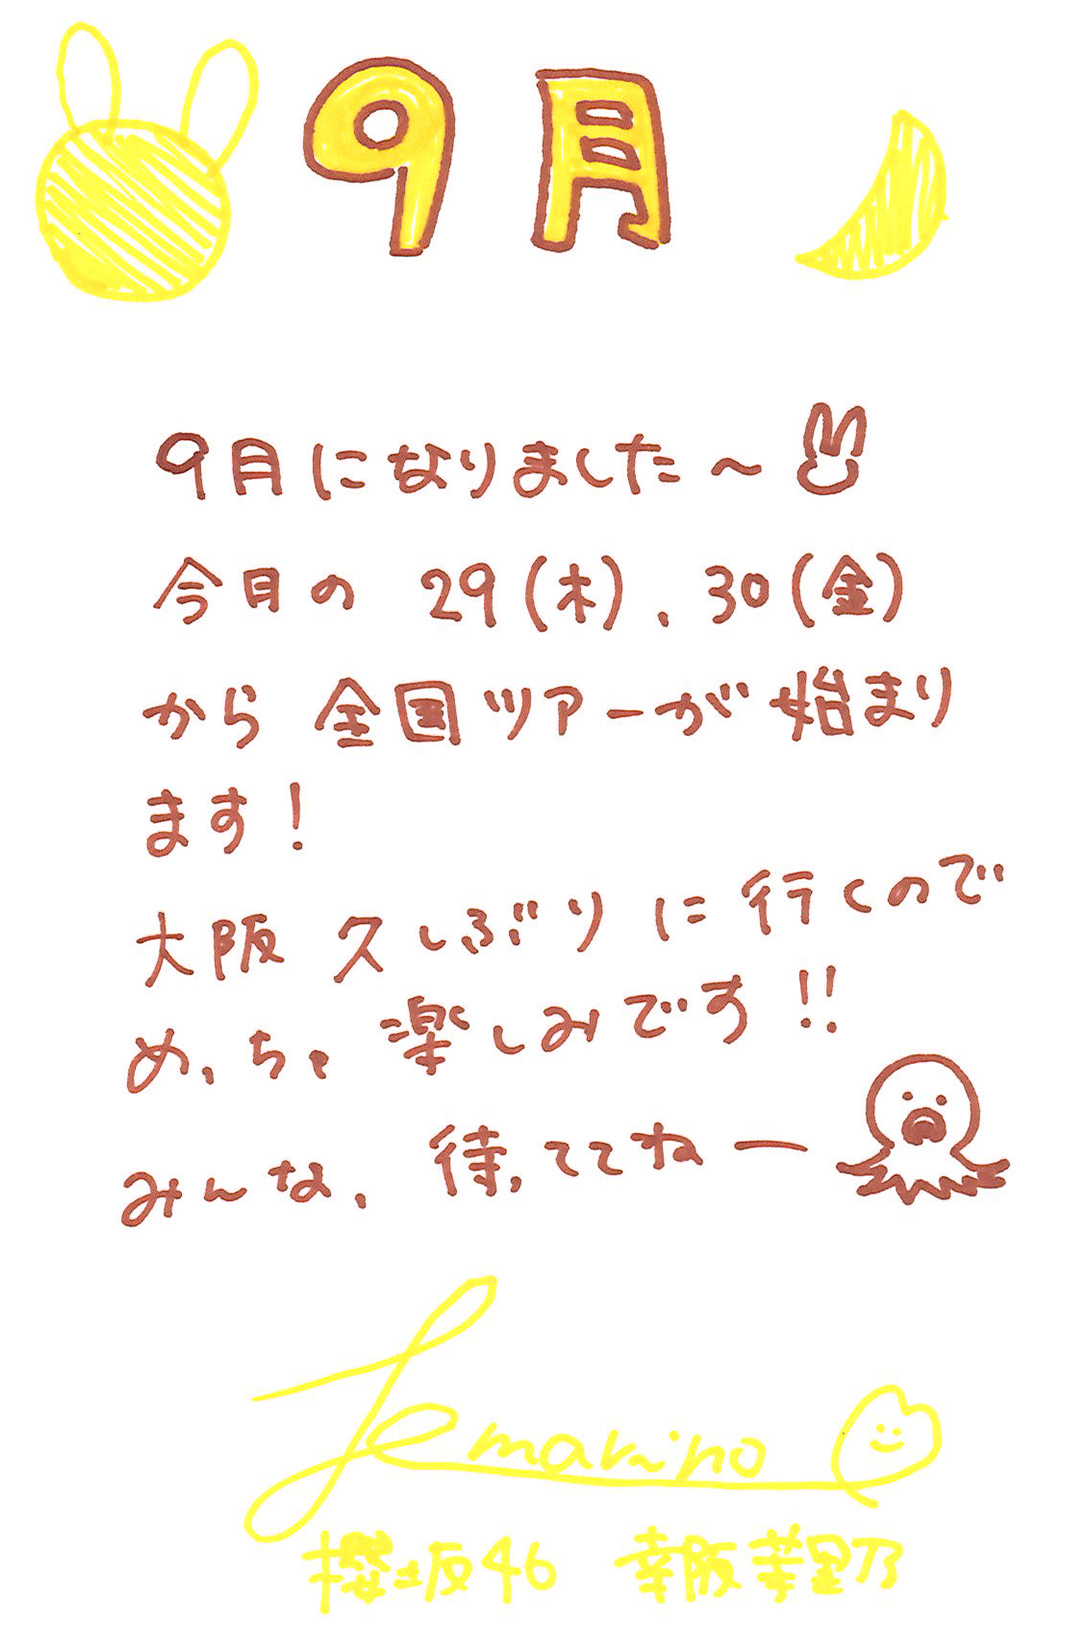 9月
9月になりました〜
今月の 29(木)、30(金)
から 全国ツアーが始まり
ます！
大阪 久しぶりに行くので
めっちゃ楽しみです！！
みんな、待っててねー
marino
櫻坂46 幸阪茉里乃